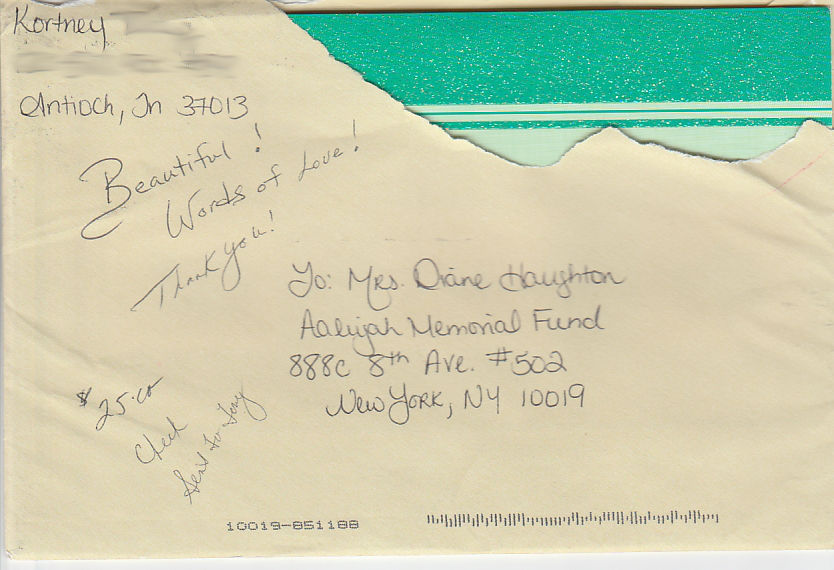 Kortney
Antioch, Tn 37013
Beautiful!
Words of Love!
Thank you!
To: Mrs. Diane Haughton
Aaliyah Memorial Fund
888c 8th Ave. #502
New York, NY 10019
$25.00
Check
Sent to Tony
10019-851188